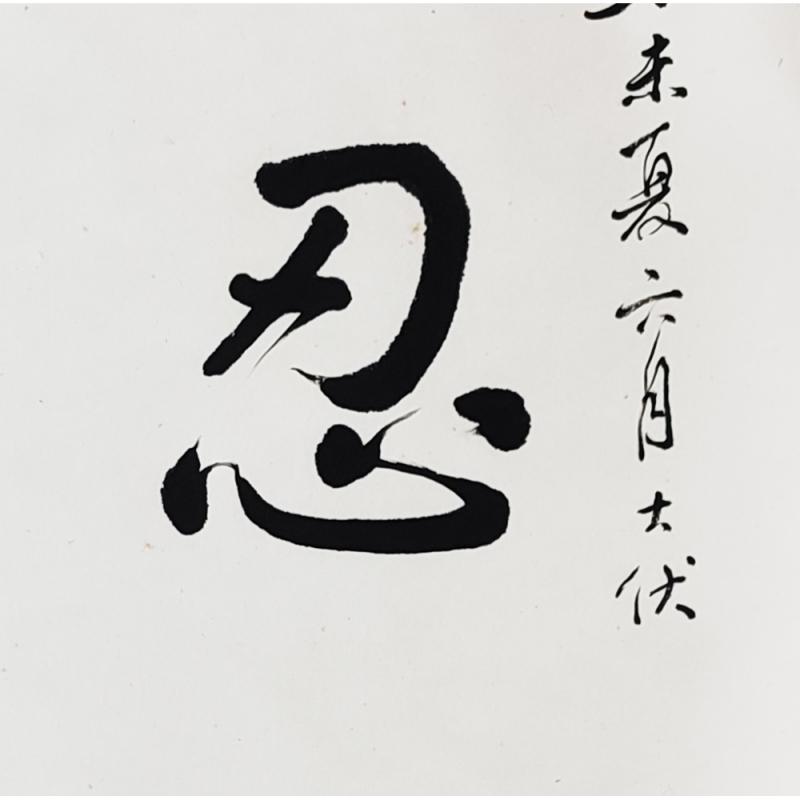 未夏六月大伏
忍